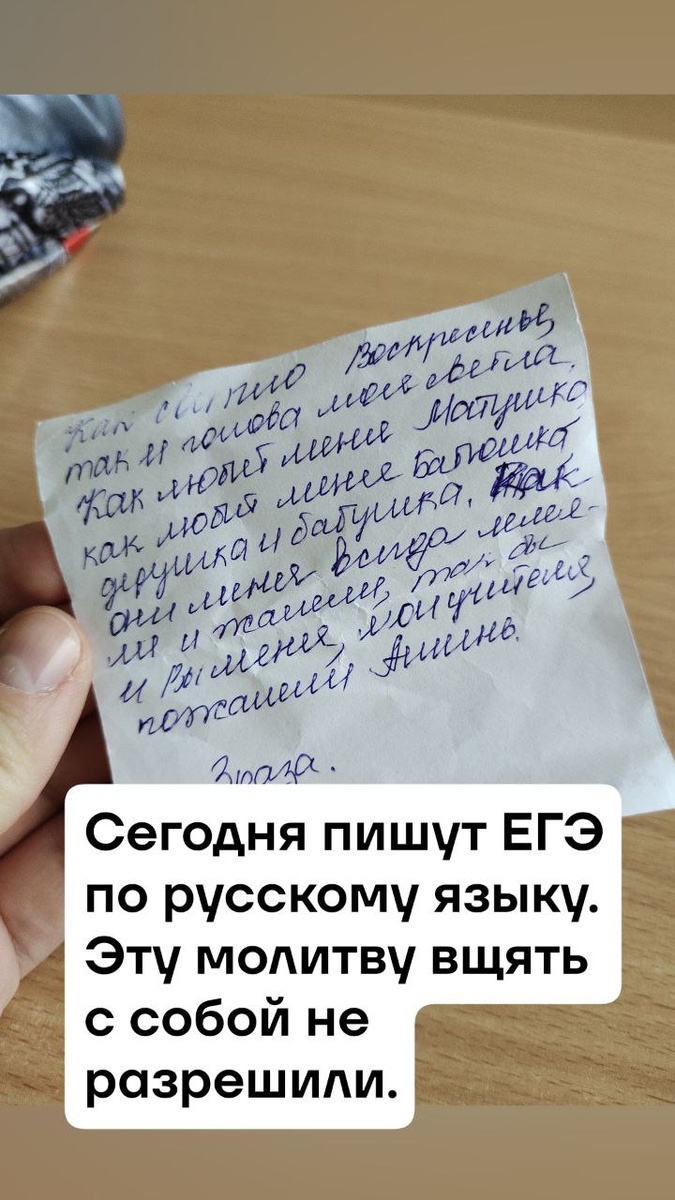 Как светило Воскресенье,
так и голова моя светла.
Как любит меня Матушка
как любит меня батюшка
дедушка и бабушка. Как
они меня всегда лелея-
ли и жалели, так бы
и Вы меня, мои учителя,
пожалели Аминь.
3 раза.
Сегодня пишут ЕГЭ
по русскому языку.
Эту молитву вщять
с собой не
разрешили.